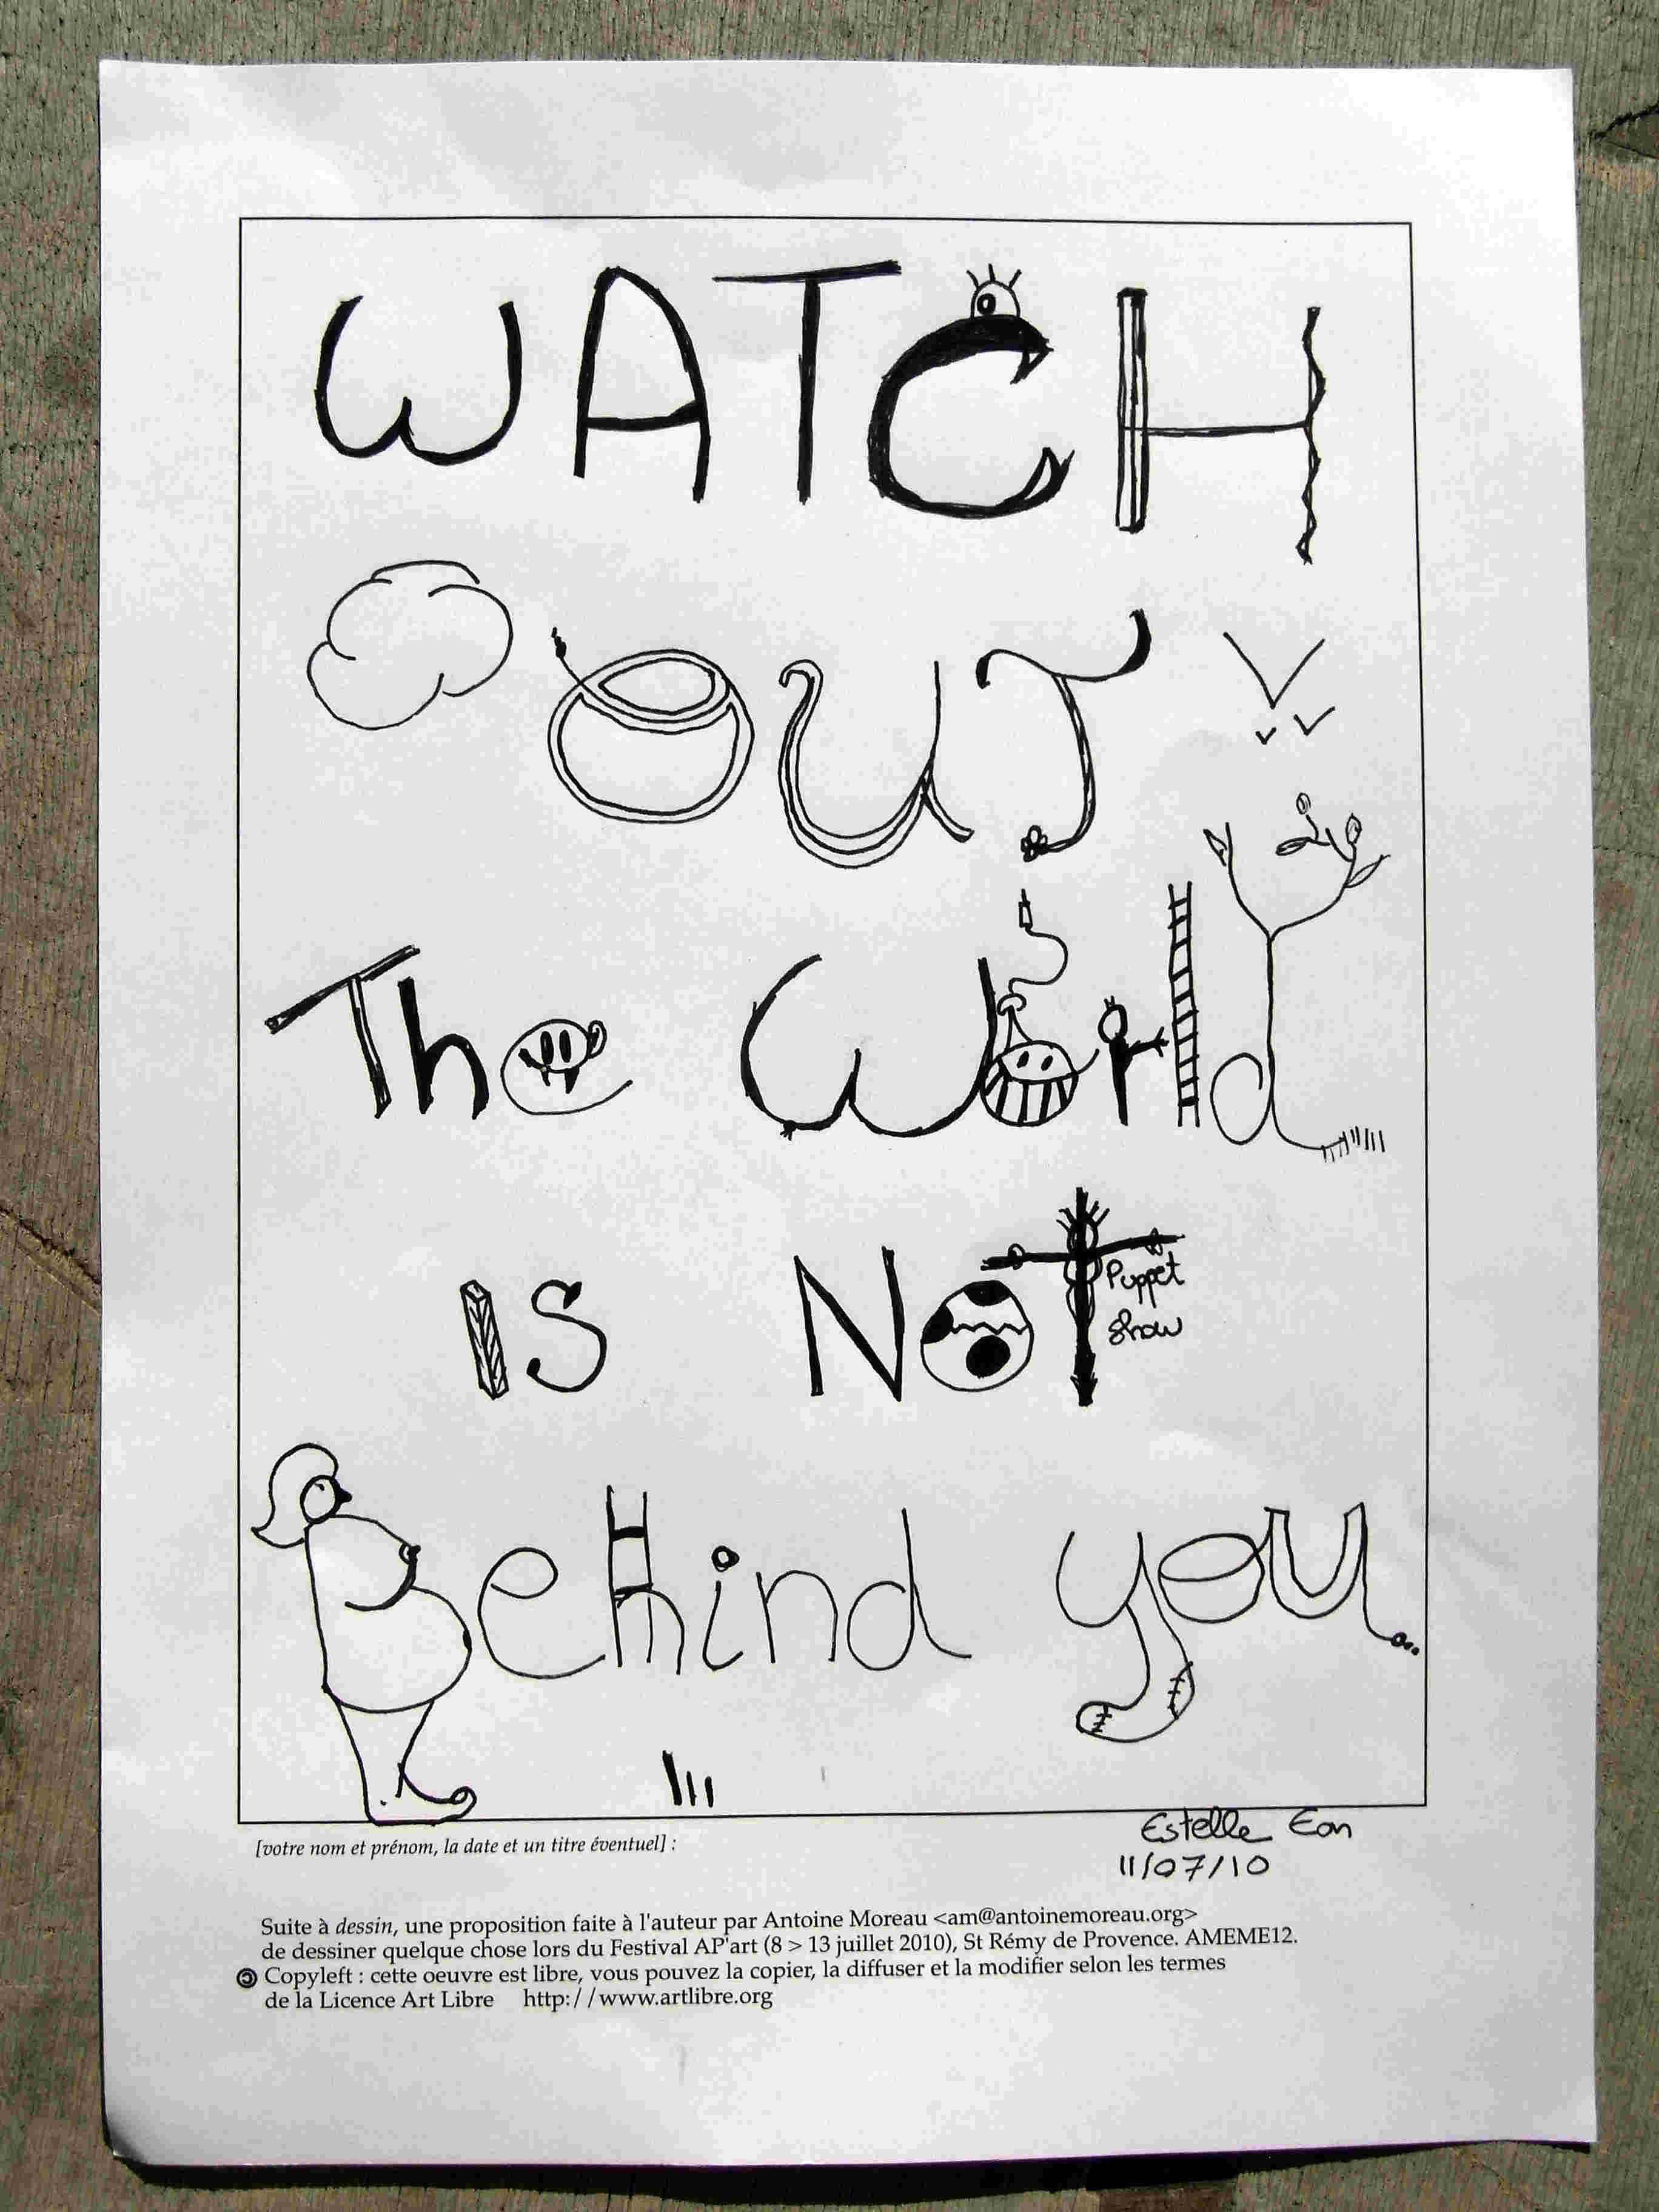 WATCH
OUT
The World
IS NOT
Puppet
Show
Behind you...
Estelle Eon
11/07/10
[votre nom et prénom, la date et un titre éventuel] :
Suite à dessin, une proposition faite à l'auteur par Antoine Moreau <am@antoinemoreau.org>
de dessiner quelque chose lors du Festival AP'art (8 > 13 juillet 2010), St Rémy de Provence. AMEME12.
Copyleft : cette oeuvre est libre, vous pouvez la copier, la diffuser et la modifier selon les termes
de la Licence Art Libre http://www.artlibre.org